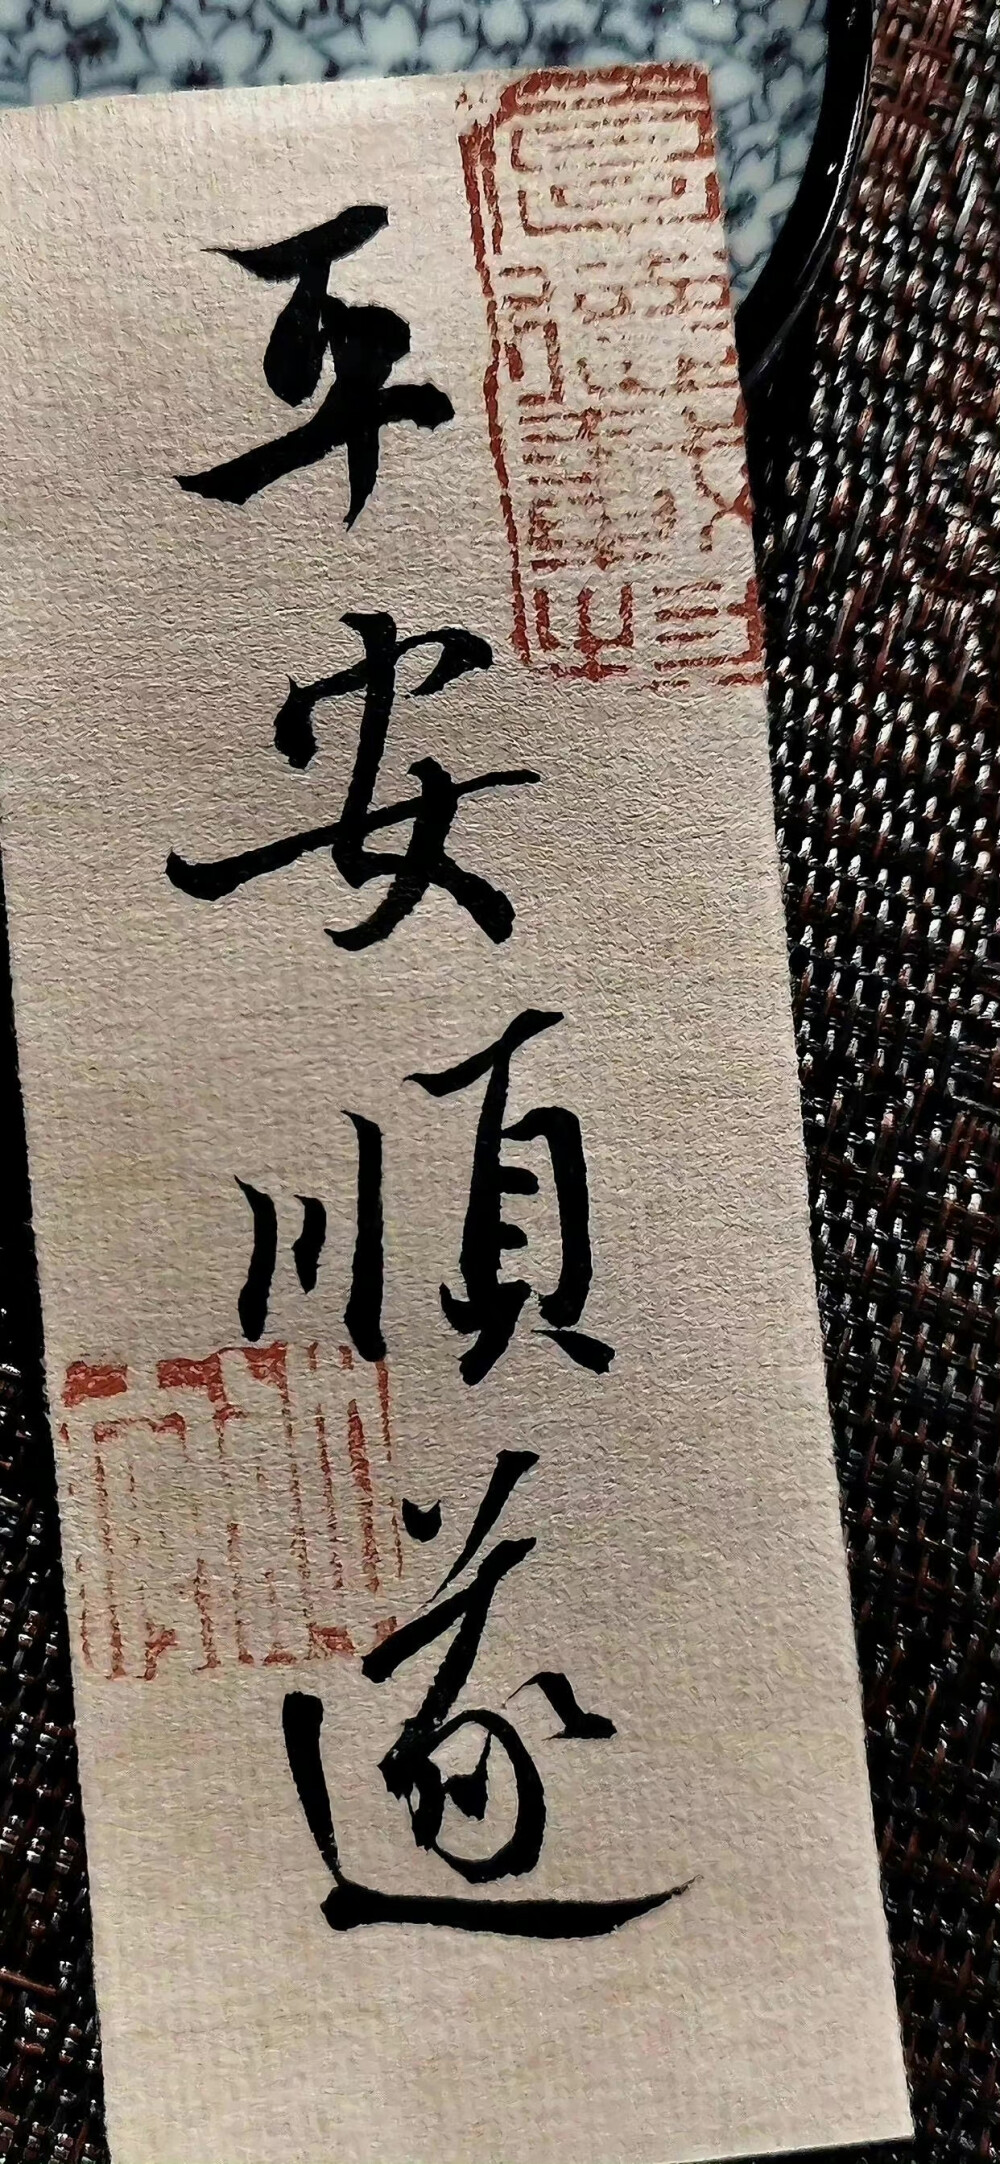 平安順遂